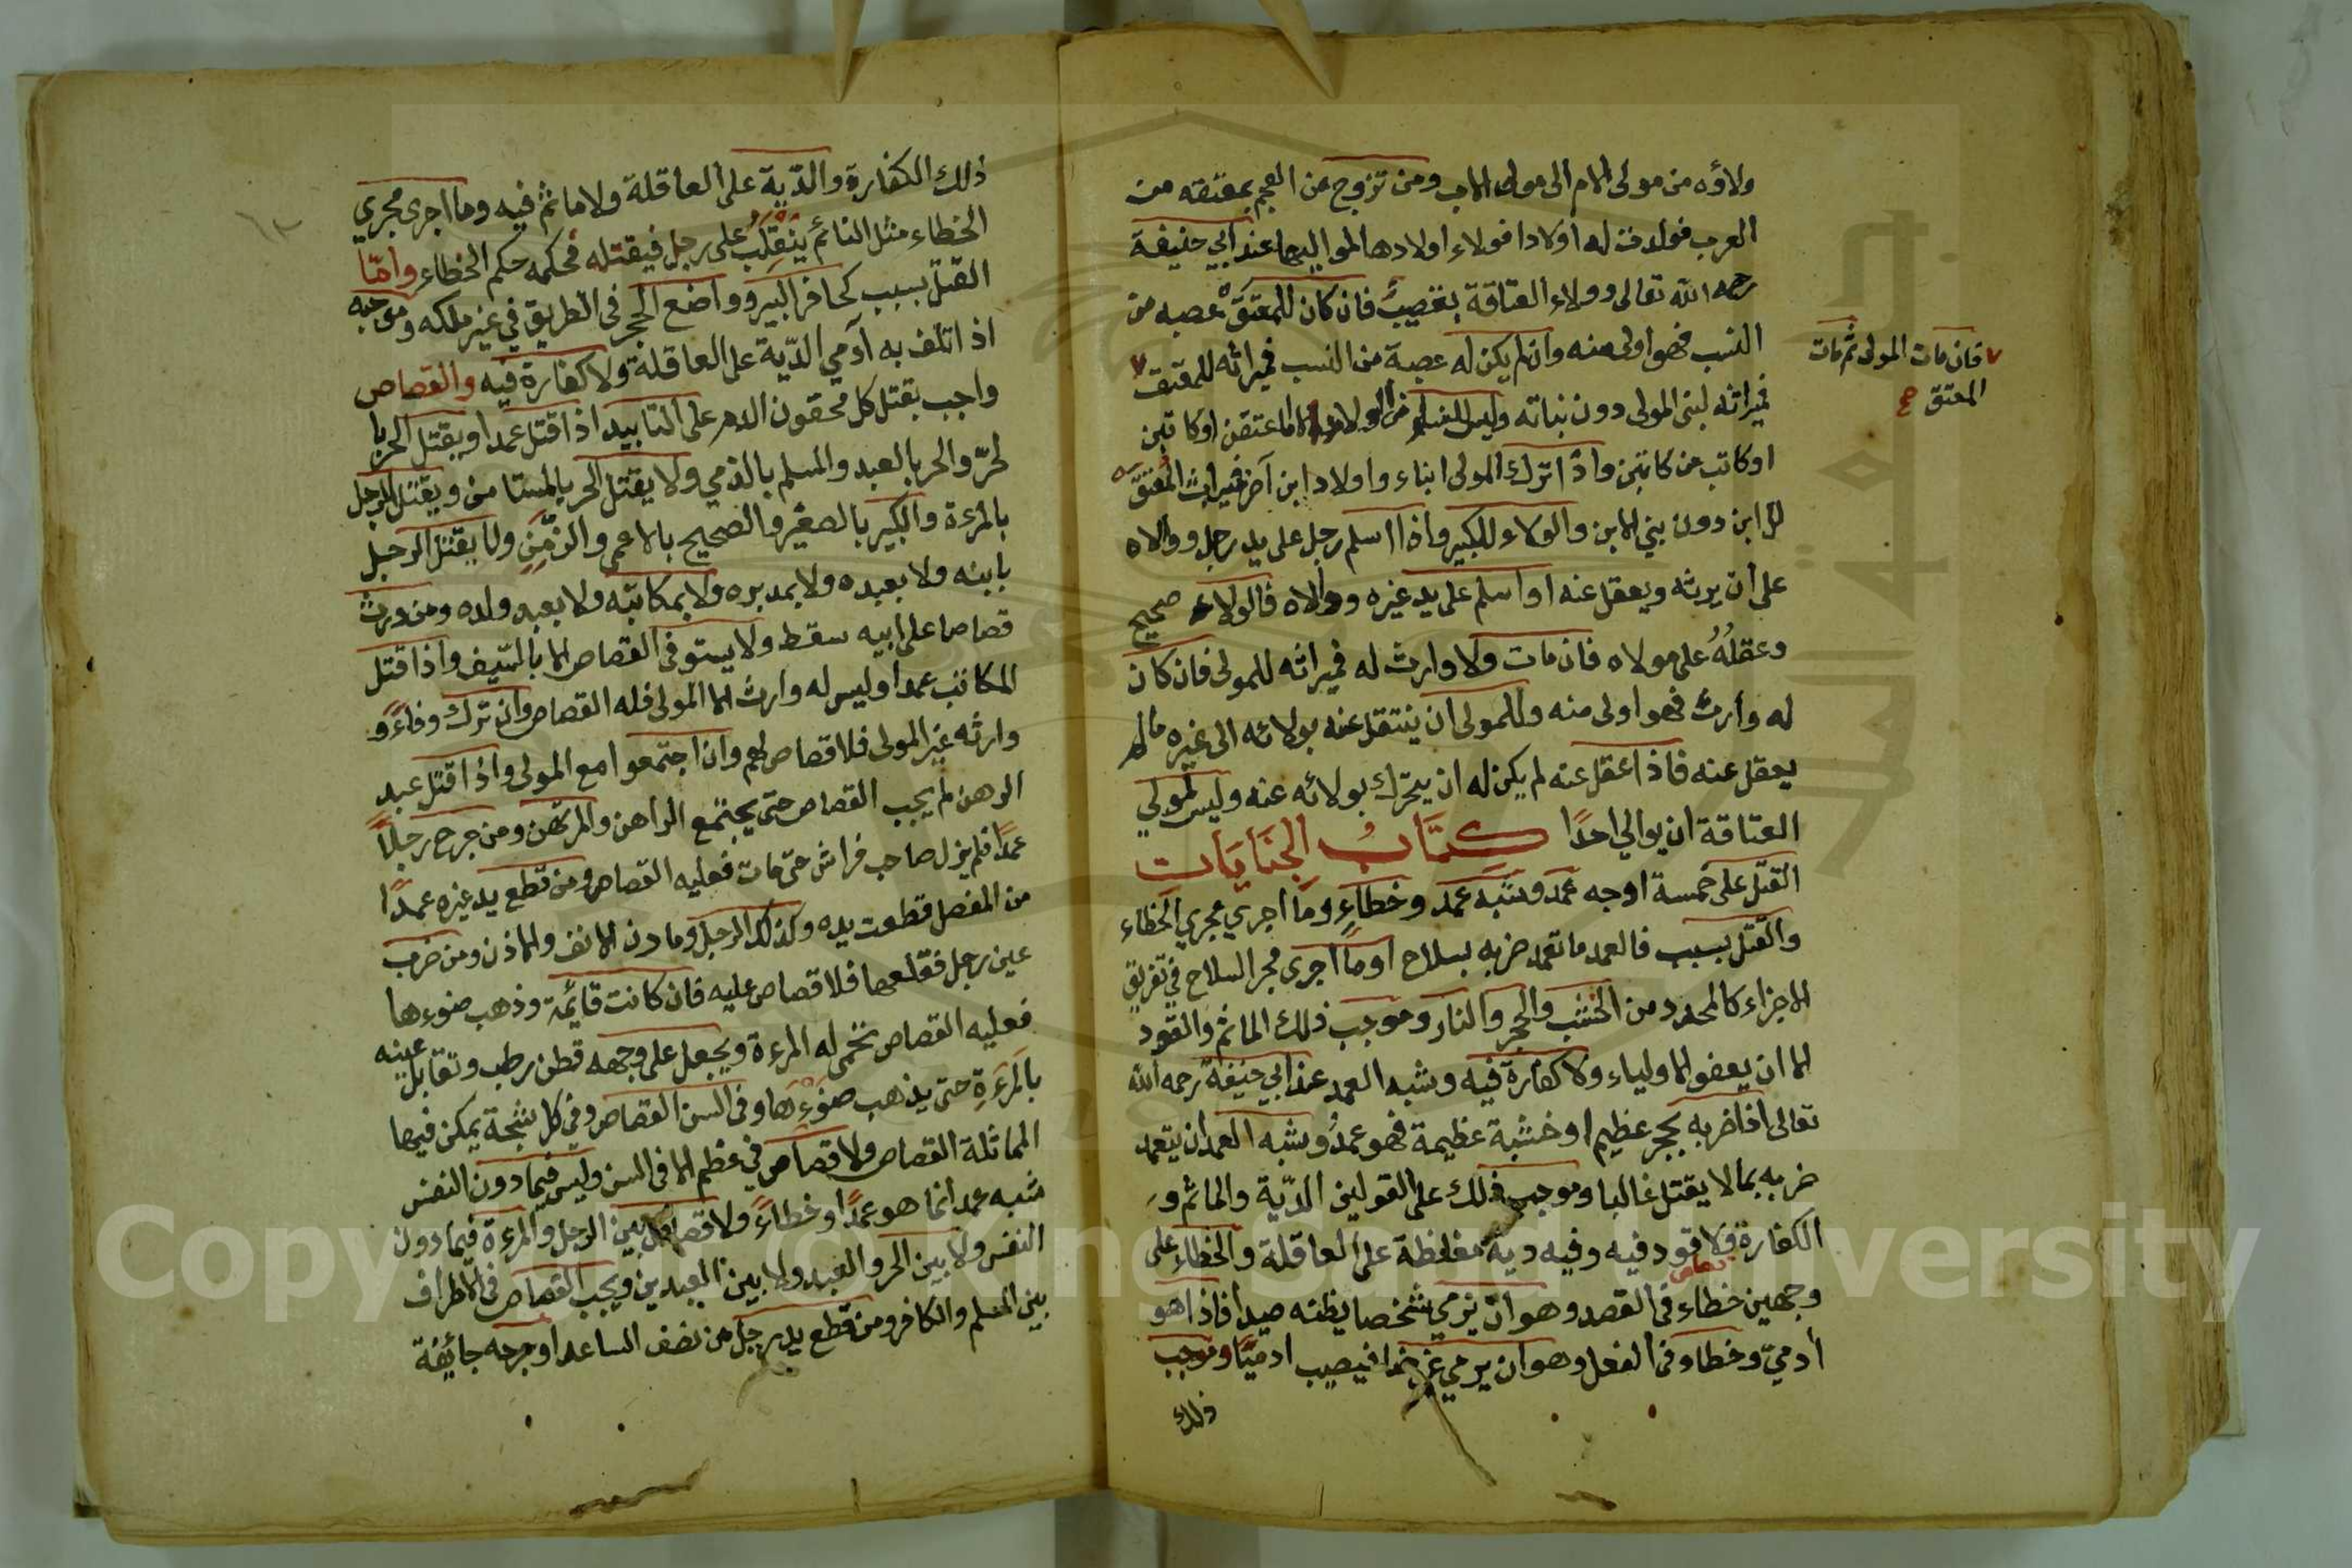 ولاؤه من مولى الام الى مولى الاب ومن تزوج من العجم بمعتقه من
العرب فولدت له اولادا فولاء اولادها لمواليها عند ابي حنيفة
رحمه الله تعالى وولاء العتاقة بغصيب فان كان للمعتق عصبه من
النسب فهو اولى منه وان لم يكن له عصبة من النسب فميراثه للمعتق
فان مات المولى ثم مات
المعتق
فميراثه لبنى المولى دون بناته وليس للنساء من الولاء الا ما اعتقن او كاتبن
او كاتب من كاتبن واذا ترك المولى ابناء واولاد ابن آخر فميراث المعتق
للابن دون بني الابن والولاء للكبير واذا اسلم رجل على يد رجل ووالاه
على ان يرثه ويعقل عنه او اسلم على يد غيره ووالاه فالولاء صحيح
وعقله على مولاه فان مات ولا وارث له فميراثه للمولى فان كان
له وارث فهو اولى منه وللمولى ان ينتقل عنه بولائه الى غيره مالم
يعقل عنه فاذا عقل عنه لم يكن له ان يتحرك بولائه عنه وليس لمولي
العتاقة ان يوالي احدًا كتاب الجنايات
القتل على خمسة اوجه عمد وشبه عمد وخطاءٍ وما اجري مجري الخطاء
والقتل بسبب فالعمد ما تعمد ضربه بسلاح او ما اجرى مجر السلاح في تفريق
الاجزاء كالمحدد من الخشب والحجر والنار وموجب ذلك الماثم والقود
الا ان يعفو الاولياء ولا كفارة فيه وشبه العمد عند ابي حنيفة رحمه الله
تعالى اذا ضربه بحجر عظيم او خشبة عظيمة فهو عمدٌ وشبه العمد ان يتعمد
ضربه بما لا يقتل غالبا وموجب ذلك على القولين الدّية والماثم و
الكفارة ولا قود فيه وفيه دية مغلظة على العاقلة والخطاء على
قصاص
وجهين خطاء في القصد وهو ان يرمي شخصا يظنه صيدا فاذا هو
أدميّ وخطاء في الفعل وهو ان يرمي غرضا فيصيب ادميًا وموجب
ذلك
ذلك الكفارة والدّية على العاقلة ولا ماثم فيه وما اجرى مجري
الخطاء مثل النائم ينقلب على رجل فيقتله فحكمه حكم الخطاء وامّا
القتل بسبب كحافر البير وواضع الحجر في الطريق في غير ملكه وموجبه
اذ اتلف به آدمي الدّية على العاقلة ولا كفارة فيه والقصاص
واجب بقتل كل محقون الدم على التابيد اذا قتل عمدا ويقتل الحر با
لحرّ والحر بالعبد والمسلم بالذمي ولا يقتل الحر بالمستامن ويقتل الرجل
بالمرءة والكبير بالصغير والصحيح بالاعمى والزّمِنِ ولا يقتل الرجل
بابنه ولا بعبده ولا بمدبره ولا بمكاتبه ولا بعبد ولده ومن ورث
قصاصا على ابيه سقط ولا يستوفى القصاص الا بالسّيف واذا قتل
المكاتب عمدا وليس له وارث الا المولى فله القصاص وان ترك وفاءً و
وارثه غير المولى فلا قصاص لهم وان اجتمعوا مع المولى واذا قتل عبد
الرهن لم يجب القصاص حتى يجتمع الراهن والمرتهن ومن جرح رجلًا
عمدًا فلم يزل صاحب فراش حتى مات فعليه القصاص ومن قطع يد غيره عمدًا
من المفصل قطعت يده وكذلك الرجل ومارن الانف والاذن ومن ضرب
عين رجل فقلعها فلا قصاص عليه فان كانت قايمة وذهب ضوءها
فعليه القصاص تحمى له المرءة ويجعل على وجهه قطن رطب وتقابل عينه
بالمرءةِ حتى يذهب ضوءها وفي السن القصاص وفي كل شجة يمكن فيها
المماثلة القصاص ولا قصاص في عظم الا في السن وليس فيما دون النفس
شبه عمد انما هو عمدًا وخطاءً ولا قصاص بين الرجل والمرءة فيما دون
النفس ولا بين الحر والعبد ولا بين العبدين ويجب القصاص في الاطراف
بين المسلم والكافر ومن قطع يد رجل من نصف الساعد او جرحه جائفة